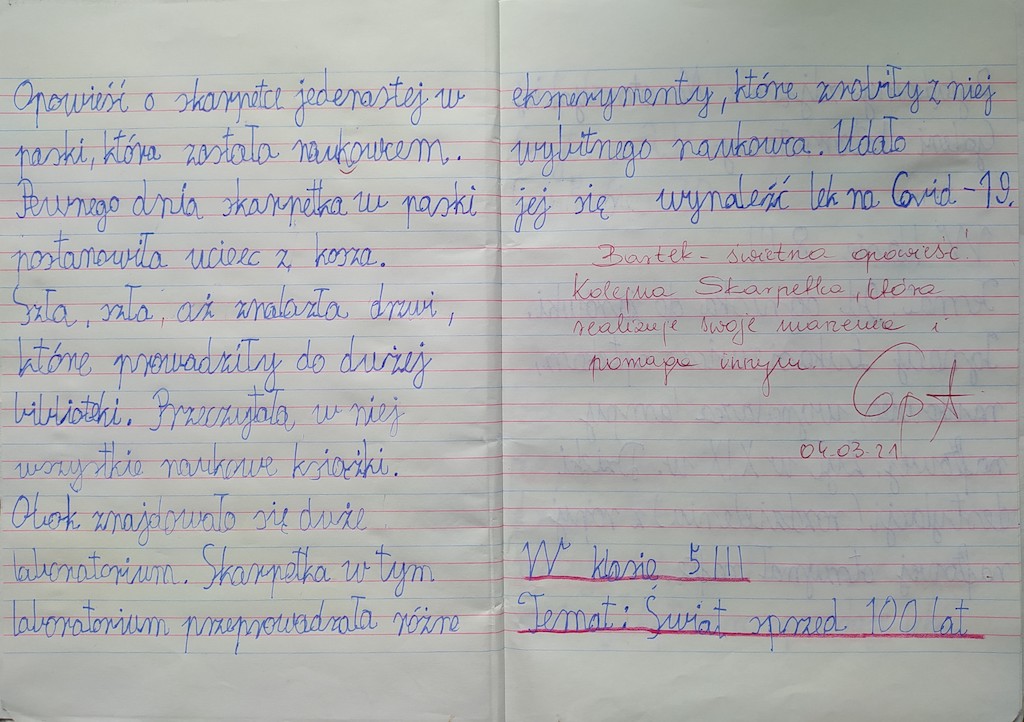 Opowieść o skarpetce jedenastej w
paski, która została naukowcem.
Pewnego dnia skarpetka w paski
postanowiła uciec z kosza.
Szła, szła, aż znalazła drzwi,
które prowadziły do dużej
biblioteki. Przeczytała w niej
wszystkie naukowe książki.
Obok znajdowało się duże
laboratorium. Skarpetka w tym
laboratorium przeprowadzała różne
eksperymenty, które zrobiły z niej
wybitnego naukowca. Udało
jej się wynaleźć lek na Covid-19.
Bartek - świetna opowieść!
Kolejna Skarpetka, która
realizuje swoje marzenia i
pomaga innym.
6pt
04.03.21
W klasie 5/III
Temat: Świat sprzed 100 lat